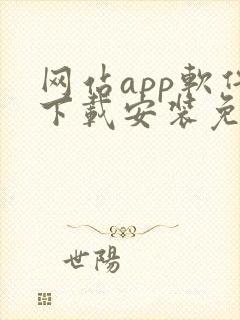 网佔app軟件
下載安装免
世陽